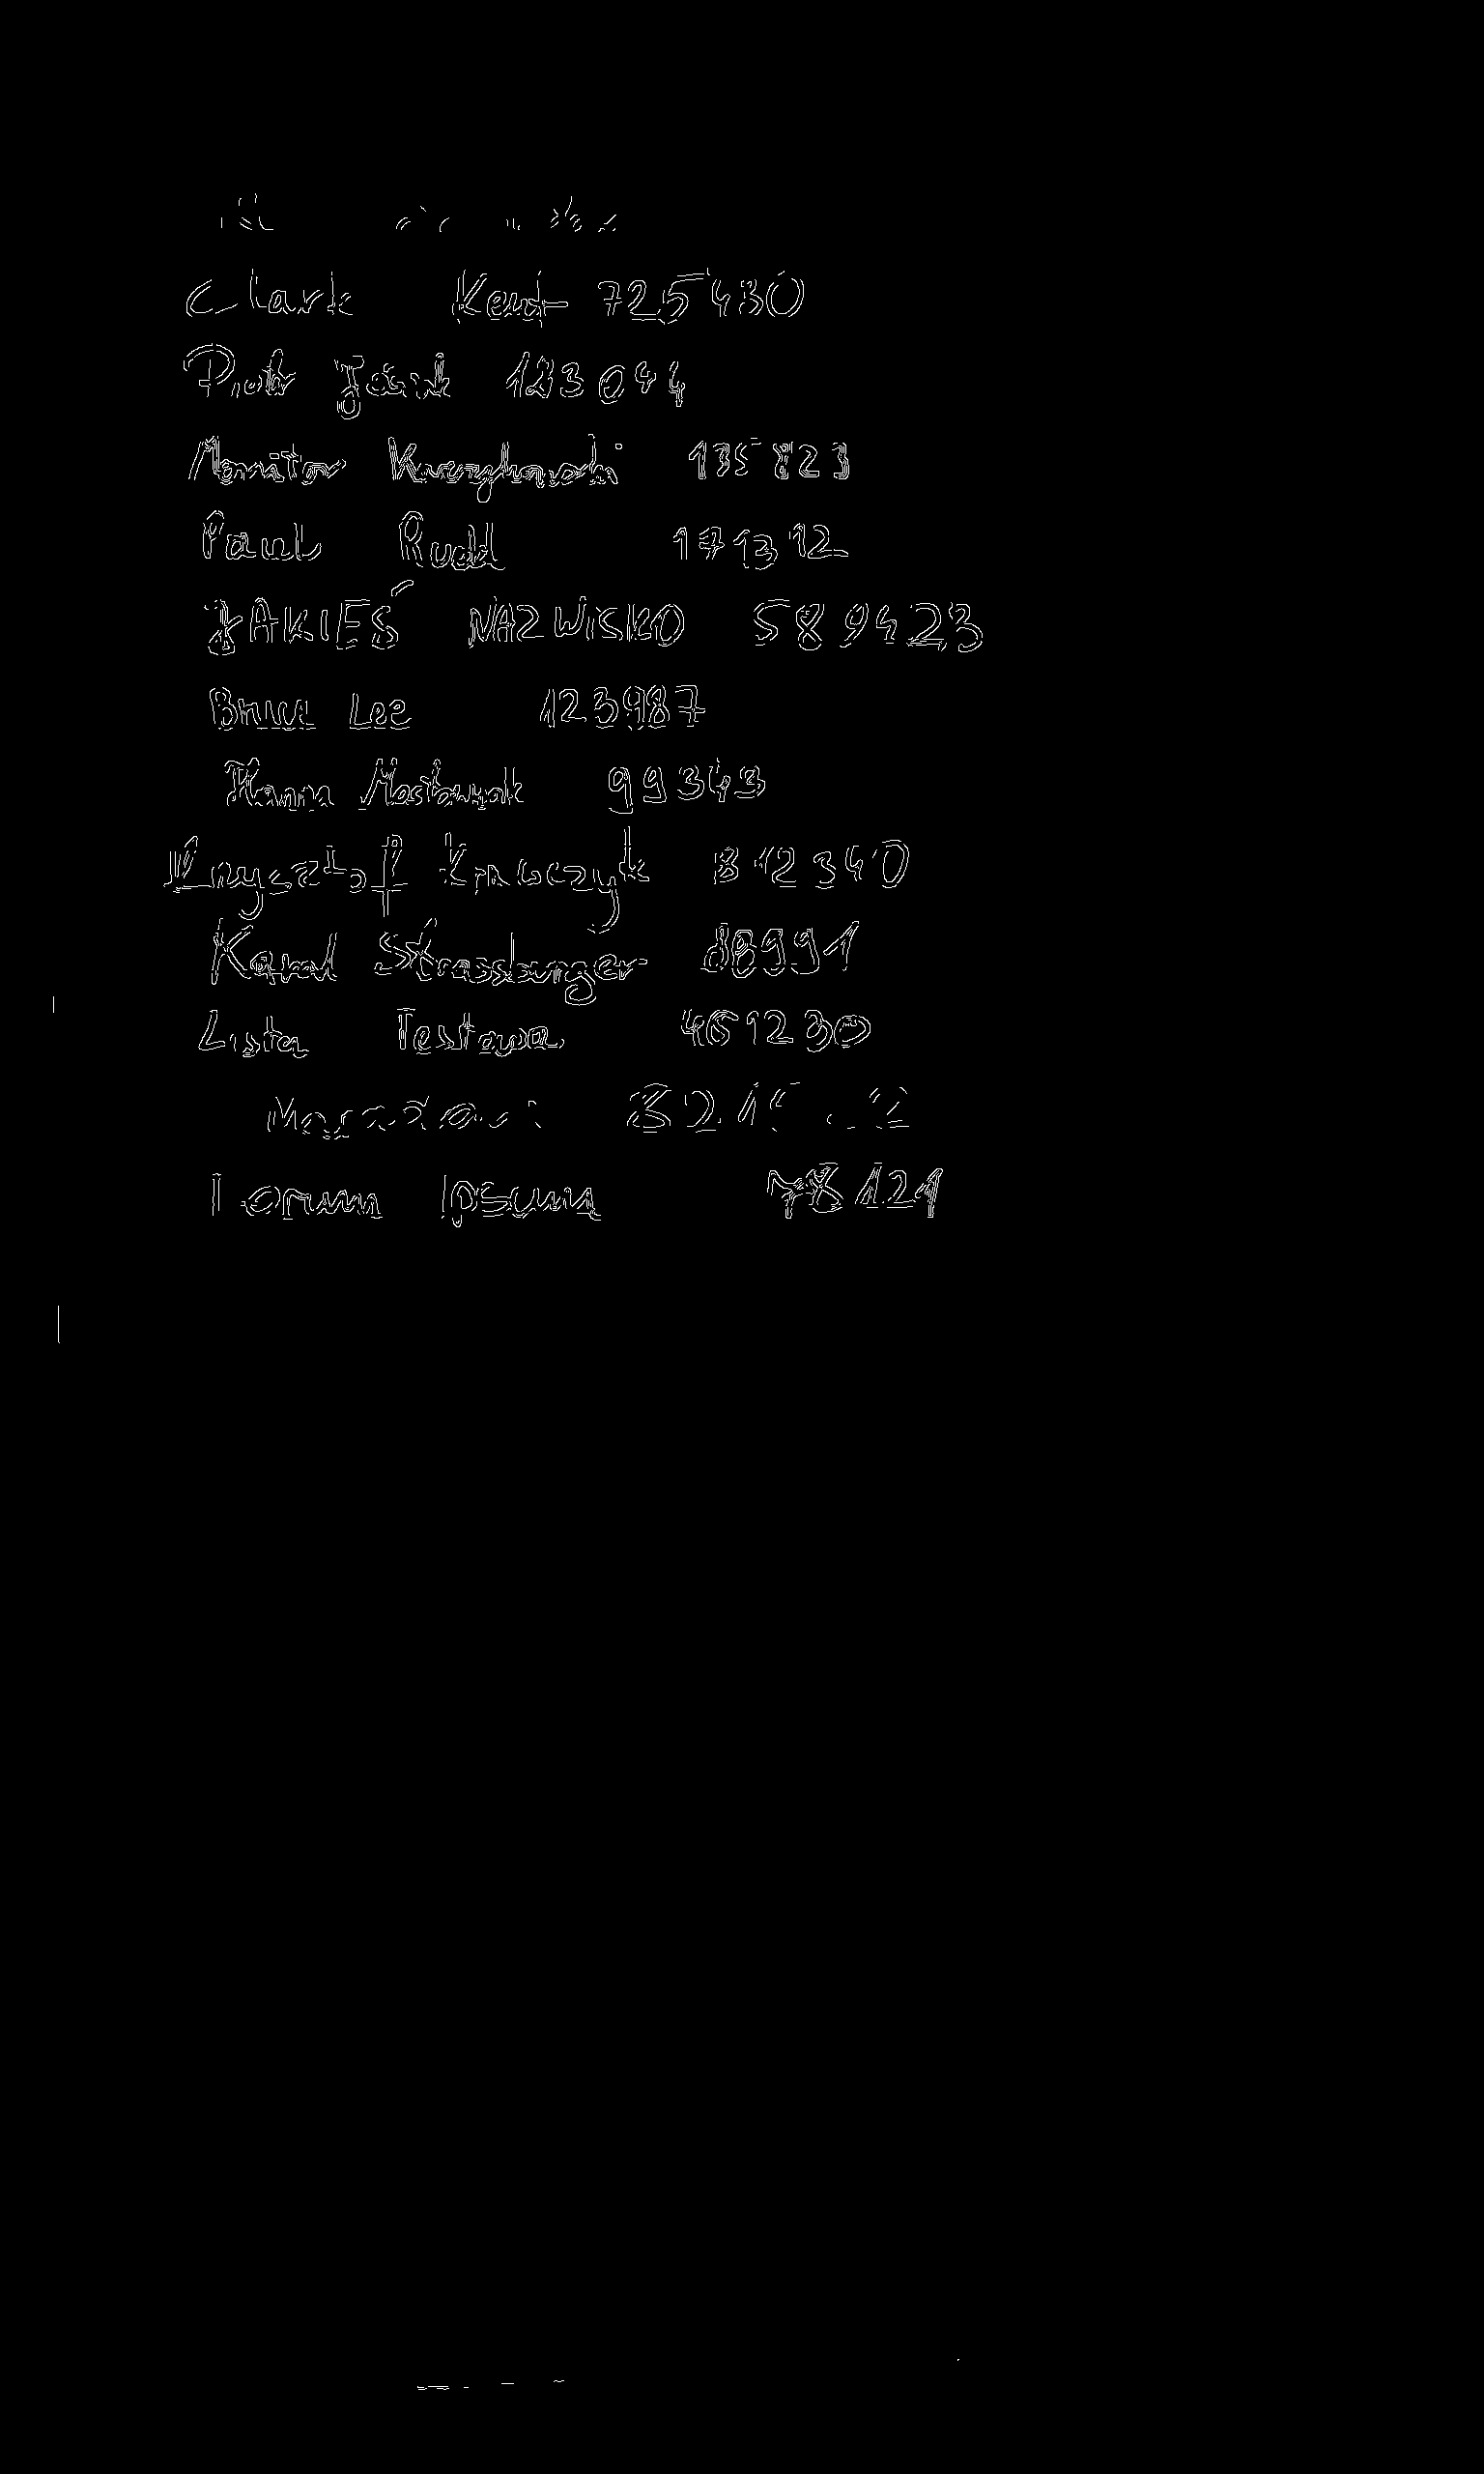 Clark Kent 725430
Piotr 123044
Monitor 135823
Paul Rudd 171312
JAKIEŚ NAZWISKO 589423
Bruce Lee 123987
Hanna 99343
Krzysztof Krawczyk 812340
Karol Strassburger 88991
Lista Testowa 461230
Lorum Ipsum 78121